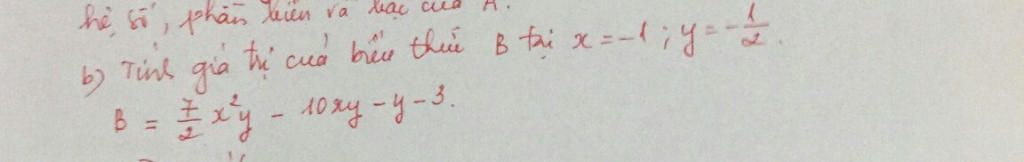 hệ số, phần biến và bậc của A.
b) Tính giá trị của biểu thức B tại x = -1 ; y = -1/2.
B = 7/2 x²y - 10xy - y - 3.